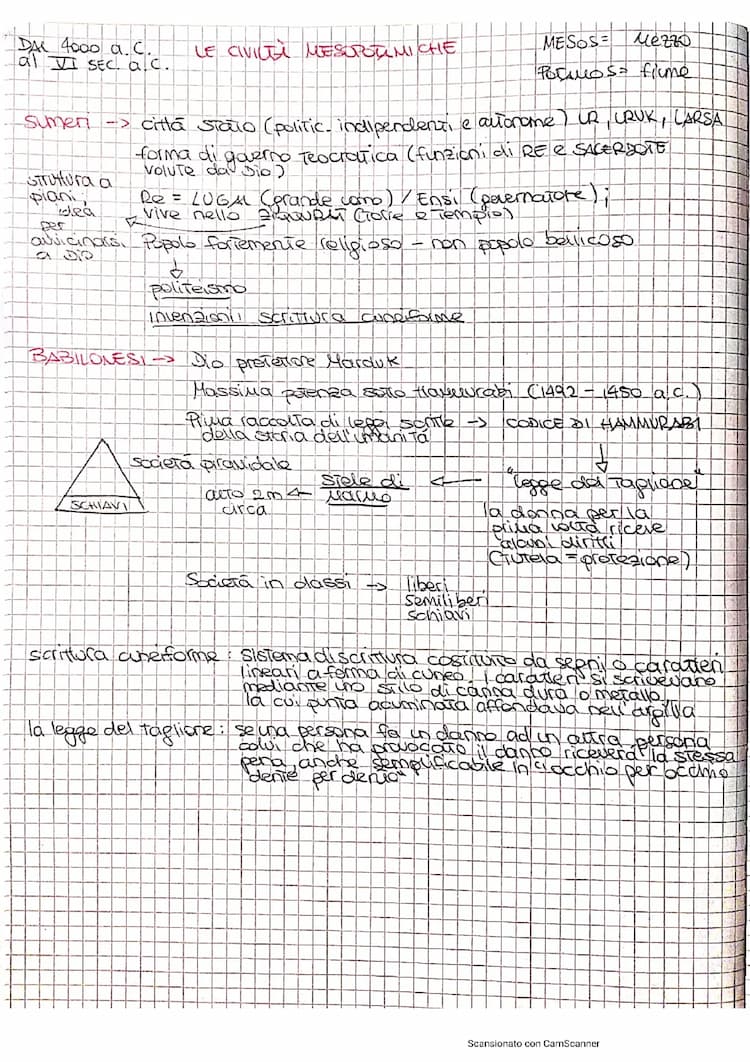 DAL 4000 a.C.
al VI SEC. a.C.
LE CIVILTÀ MESOPOTAMICHE
MESOS = MEZZO
POTAMOS = fiume
SUMERI -> città stato (politic. indipendenti e autonome) UR, URUK, LARSA
forma di governo TEOCRATICA (funzioni di RE e SACERDOTE
volute da Dio)
struttura a
piani,
idea
per
avvicinarsi
a DIO
Re = LUGAL (grande uomo) / Ensi (governatore);
vive nello ZIGGURAT (Torre e Tempio)
Popolo fortemente religioso - non popolo bellicoso
politeismo
invenzioni: scrittura cuneiforme
BABILONESI -> Dio protettore Marduk
Massima potenza sotto Hammurabi (1492 - 1450 a.C.)
Prima raccolta di leggi scritte -> CODICE DI HAMMURABI
della storia dell'umanità
società piramidale
SCHIAVI
alto 2m <- stele di
circa marmo
<- "legge del Taglione"
la donna per la
prima volta riceve
alcuni diritti
(tutela = protezione)
Società in classi -> liberi
semiliberi
schiavi
scrittura cuneiforme: sistema di scrittura costituito da segni o caratteri
lineari a forma di cuneo. I caratteri si scrivevano
mediante uno stilo di canna dura o metallo,
la cui punta acuminata affondava nell'argilla
la legge del taglione: se una persona fa un danno ad un altra persona
colui che ha provocato il danno riceverà la stessa
pena, anche semplificabile in "occhio per occhio
dente per dente"
Scansionato con CamScanner